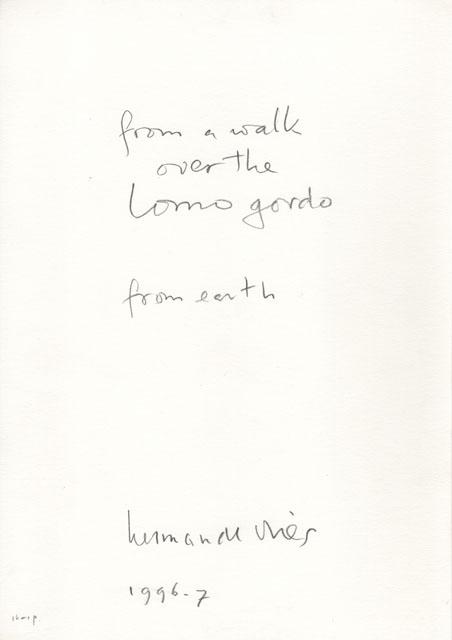 from a walk
over the
lomo gordo
from earth
herman de vries
1996-7